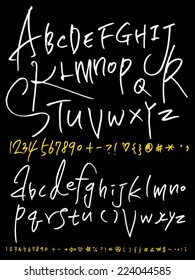 ABCDEFGHIJ
KLMNOPQR
STUVWXYZ
1234567890+-?!♡{}@#()
abcdefghijklmno
pqrstuvwxyz
1234567890
www.shutterstock.com · 224044585